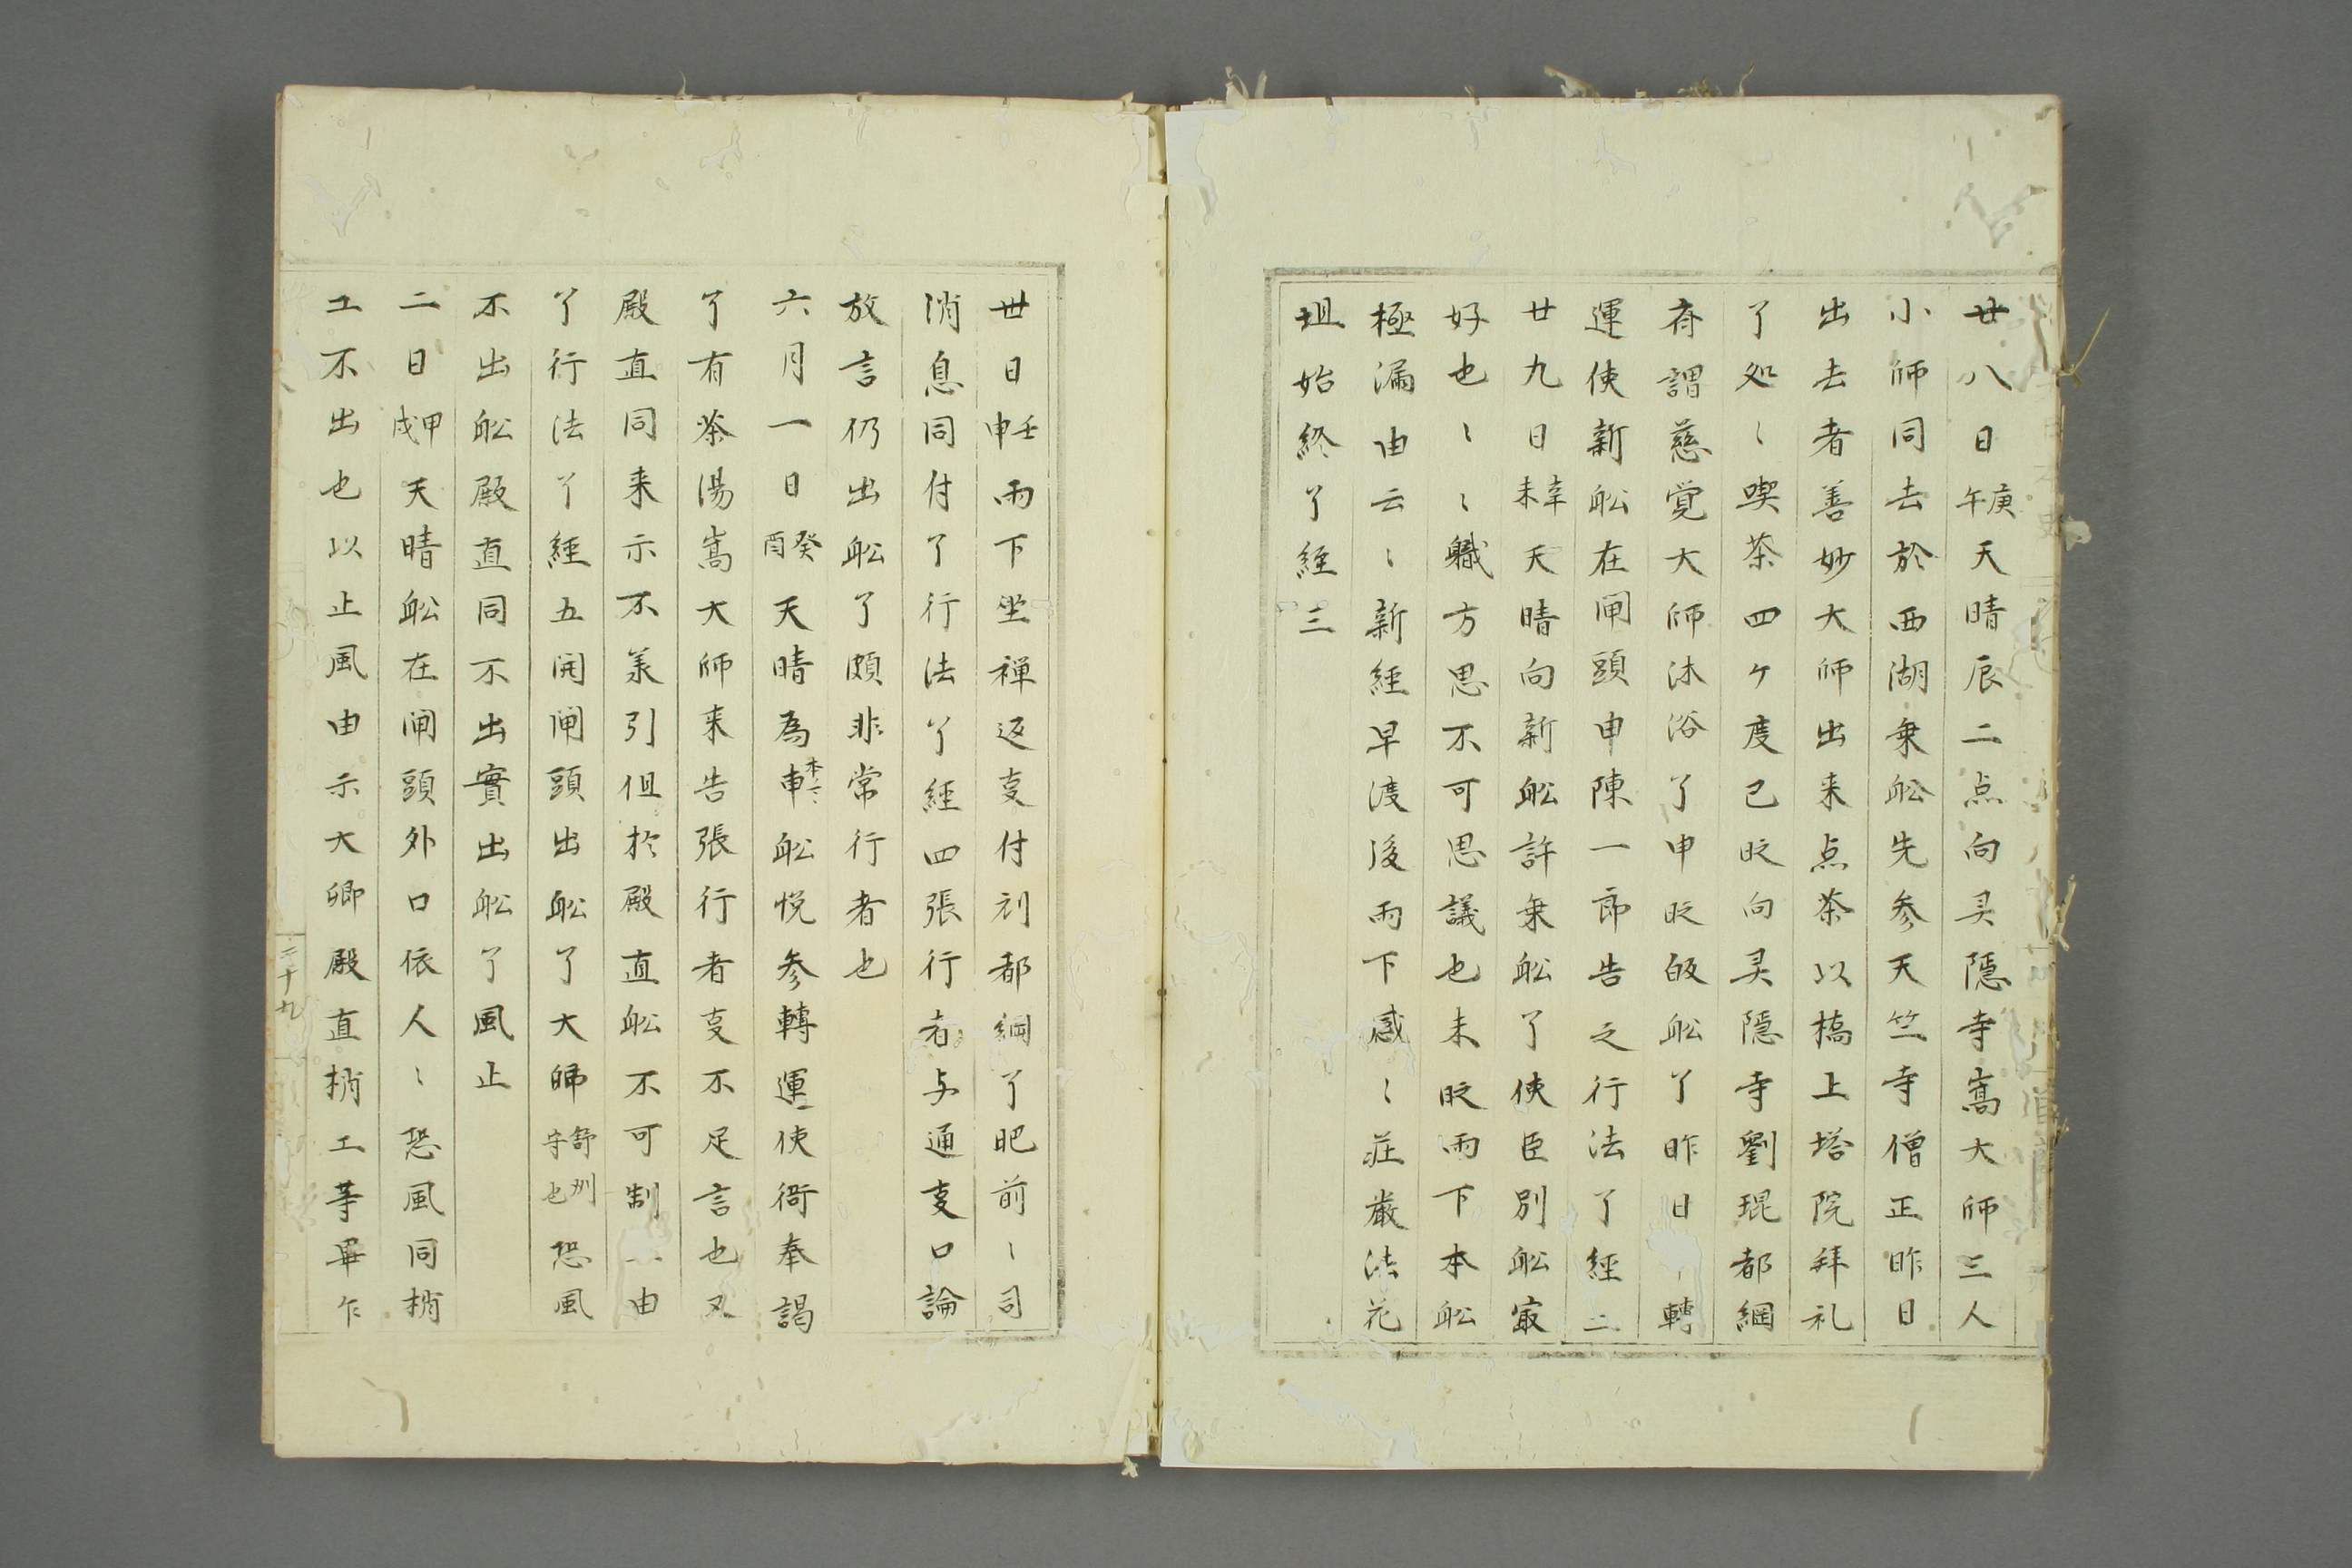 廿八日庚午天晴辰二点向灵隱寺嵩大師三人
小師同去於西湖乗舩先参天竺寺僧正昨日
出去者善妙大師出来点茶以橋上塔院拜礼
了処〻喫茶四ケ度已時向灵隱寺劉琨都綱
斎謂慈覚大師沐浴了申時皈舩了昨日轉
運使新舩在閘頭申陳一郎告之行法了經二
廿九日辛未天晴向新舩許乗舩了使臣別舩㝡
好也〻〻職方思不可思議也未時雨下本舩
極漏由云〻新經早渡後雨下感〻荘嚴法花
坦始終了經三
丗日壬申雨下坐禅返叓付刘都綱了肥前〻司
消息同付了行法了經四張行者与通叓口論
放言仍出舩了頗非常行者也
六月一日癸酉天晴為申本〻〻舩悦参轉運使衙奉謁
了有茶湯嵩大師来告張行者叓不足言也又
殿直同来示不羕引但於殿直舩不可制〻由
了行法了經五開閘頭出舩了大師舒州守也恐風
不出舩殿直同不出實出舩了風止
二日甲戌天晴舩在閘頭外口依人〻恐風同梢
工不出也以止風由示大卿殿直梢工等畢乍
二十九